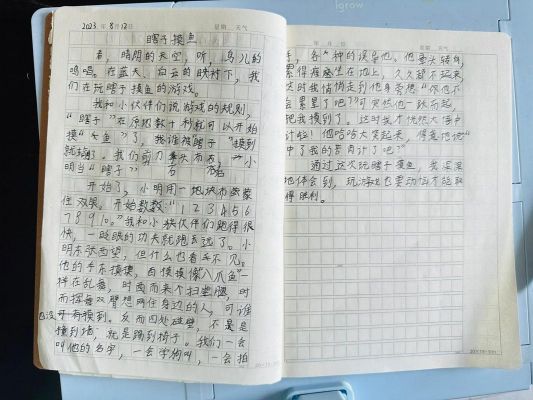 lgrow
2023 年 8月12日 星期 天气
瞎子摸鱼
看，晴阴的天空，听，鸟儿的
鸣鸣。在蓝天、白云的映衬下，我
们在玩瞎子摸鱼的游戏。
我和小伙伴们说游戏的规则，
"瞎子"在原地数十秒就可以开始
摸"鱼"了，我谁被瞎子"摸到
就输了。我们剪刀石头布，"小
明当"瞎子"
开始了，小明用一块
住双眼。开始数数"1 2 3 4 5 6
7 8 9 10。"我和小伙伴们跑得很
快，一眨眼的功夫就跑去远了。小
明东张西望，但什么也看不见。
他的手东摸摸，西摸摸像"八爪鱼"一
样在乱舞，时而来个扫堂腿，时
而挥舞双臂想抓住身边的人，可谁
也没有摸到。反而四处碰壁，不是
撞到墙，就是踢到椅子。我们一会
叫他的名字，一会学狗叫，一会拍
年 月 日 星期 天气
手，各种的误导他。他晕头转向，
累得瘫坐在地上，久久都不起来，
这时我悄悄走到他身旁想"你也不
会累呈了吧？"可突然他一跃而起，
把我摸到了。这时我才恍然大悟中
计啦！他哈哈大笑起来，得意
中了我的苦肉计了吧"
通过这次玩瞎子摸鱼，我深深
地体会到，玩游戏也要动脑才能取
得胜利。